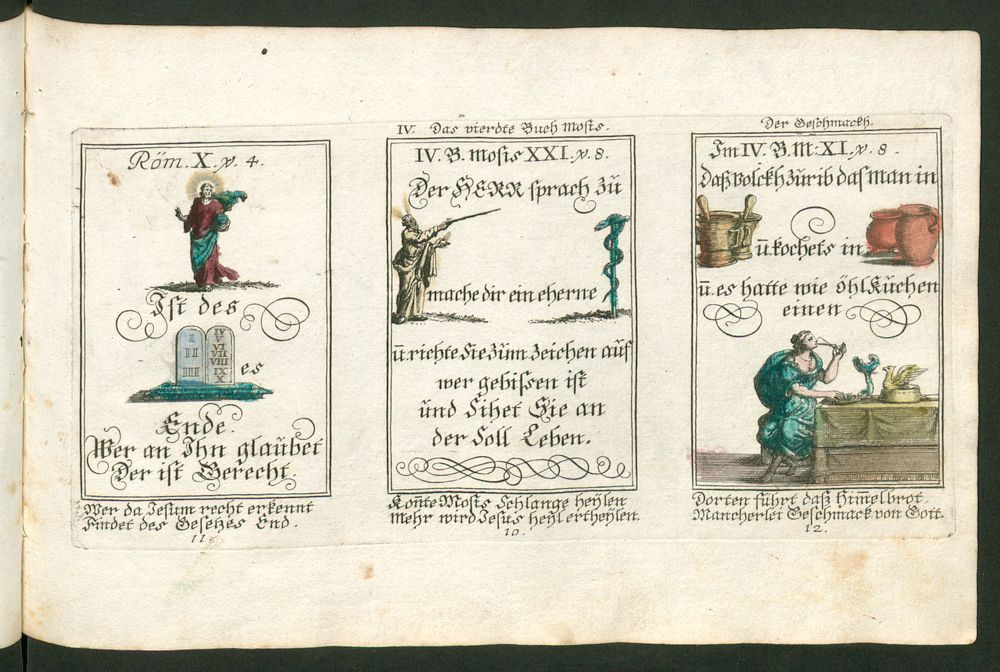 Röm. X. v. 4.
Ist des
I
II
IIII
IV
V
VI
VII
VIII
IX
X
es
Ende.
Wer an Ihn glaubet
Der ist Gerecht.
Wer da Jesum recht erkennt
Findet des Gesetzes End.
11.
IV. Das vierdte Buch Mosis.
IV. B. Mosis XXI. v. 8.
Der HERR sprach zu
mache dir ein eherne
ū. richte Sie zum zeichen auf
wer gebissen ist
und Sihet Sie an
der Soll Leben.
Koñte Mosis Schlange heylen
Mehr wird Jesus heyl ertheylen.
10.
Der Geschmackh.
Im IV. B. M: XI. v. 8.
Daß volckh zürib das man in
ū. kochets in
ū. es hatte wie öhl Kuchen
einen
Dorten führt daß Him̃elbrot
Mancherleÿ Geschmack von Gott.
12.